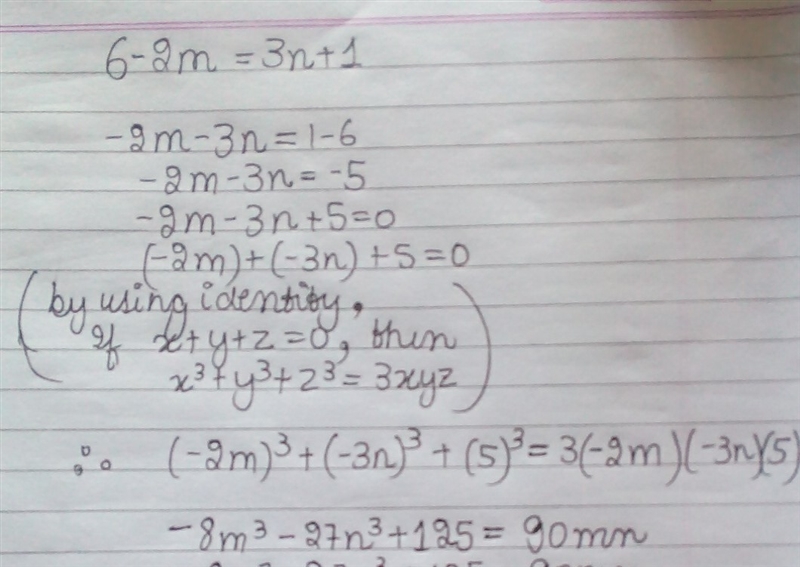 6-2m = 3n+1
-2m-3n = 1-6
-2m-3n = -5
-2m-3n+5=0
(-2m)+(-3n)+5=0
(by using identity,
If x+y+z=0, then
x³+y³+z³ = 3xyz)
∴ (-2m)³+(-3n)³+(5)³ = 3(-2m)(-3n)(5)
-8m³-27n³+125 = 90mn